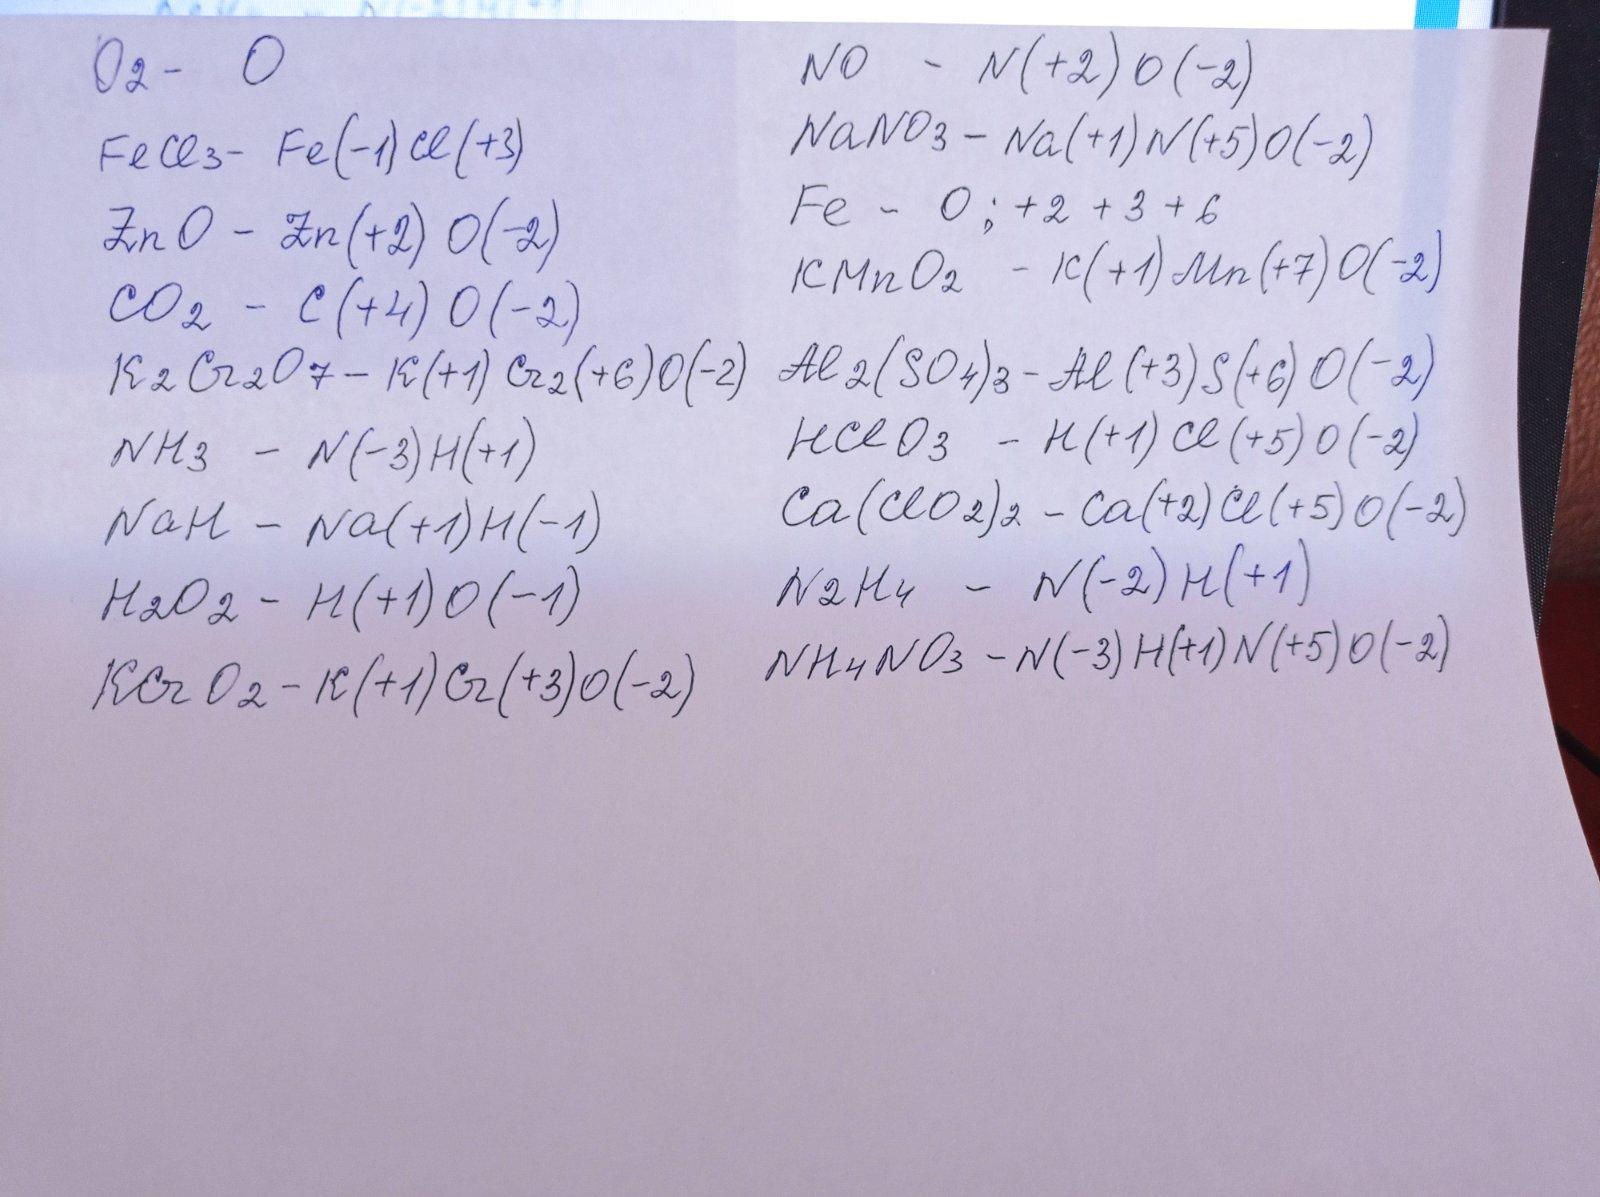 O2 - O
FeCl3 - Fe(-1)Cl(+3)
ZnO - Zn(+2) O(-2)
CO2 - C(+4) O(-2)
K2Cr2O7 - K(+1) Cr2(+6)O(-2)
NH3 - N(-3)H(+1)
NaH - Na(+1)H(-1)
H2O2 - H(+1)O(-1)
KCrO2 - K(+1)Cr(+3)O(-2)
NO - N(+2) O(-2)
NaNO3 - Na(+1)N(+5)O(-2)
Fe - O; +2 +3 +6
KMnO2 - K(+1)Mn(+7)O(-2)
Al2(SO4)3 - Al(+3)S(+6) O(-2)
HClO3 - H(+1)Cl(+5)O(-2)
Ca(ClO2)2 - Ca(+2)Cl(+5)O(-2)
N2H4 - N(-2)H(+1)
NH4NO3 - N(-3)H(+1)N(+5)O(-2)